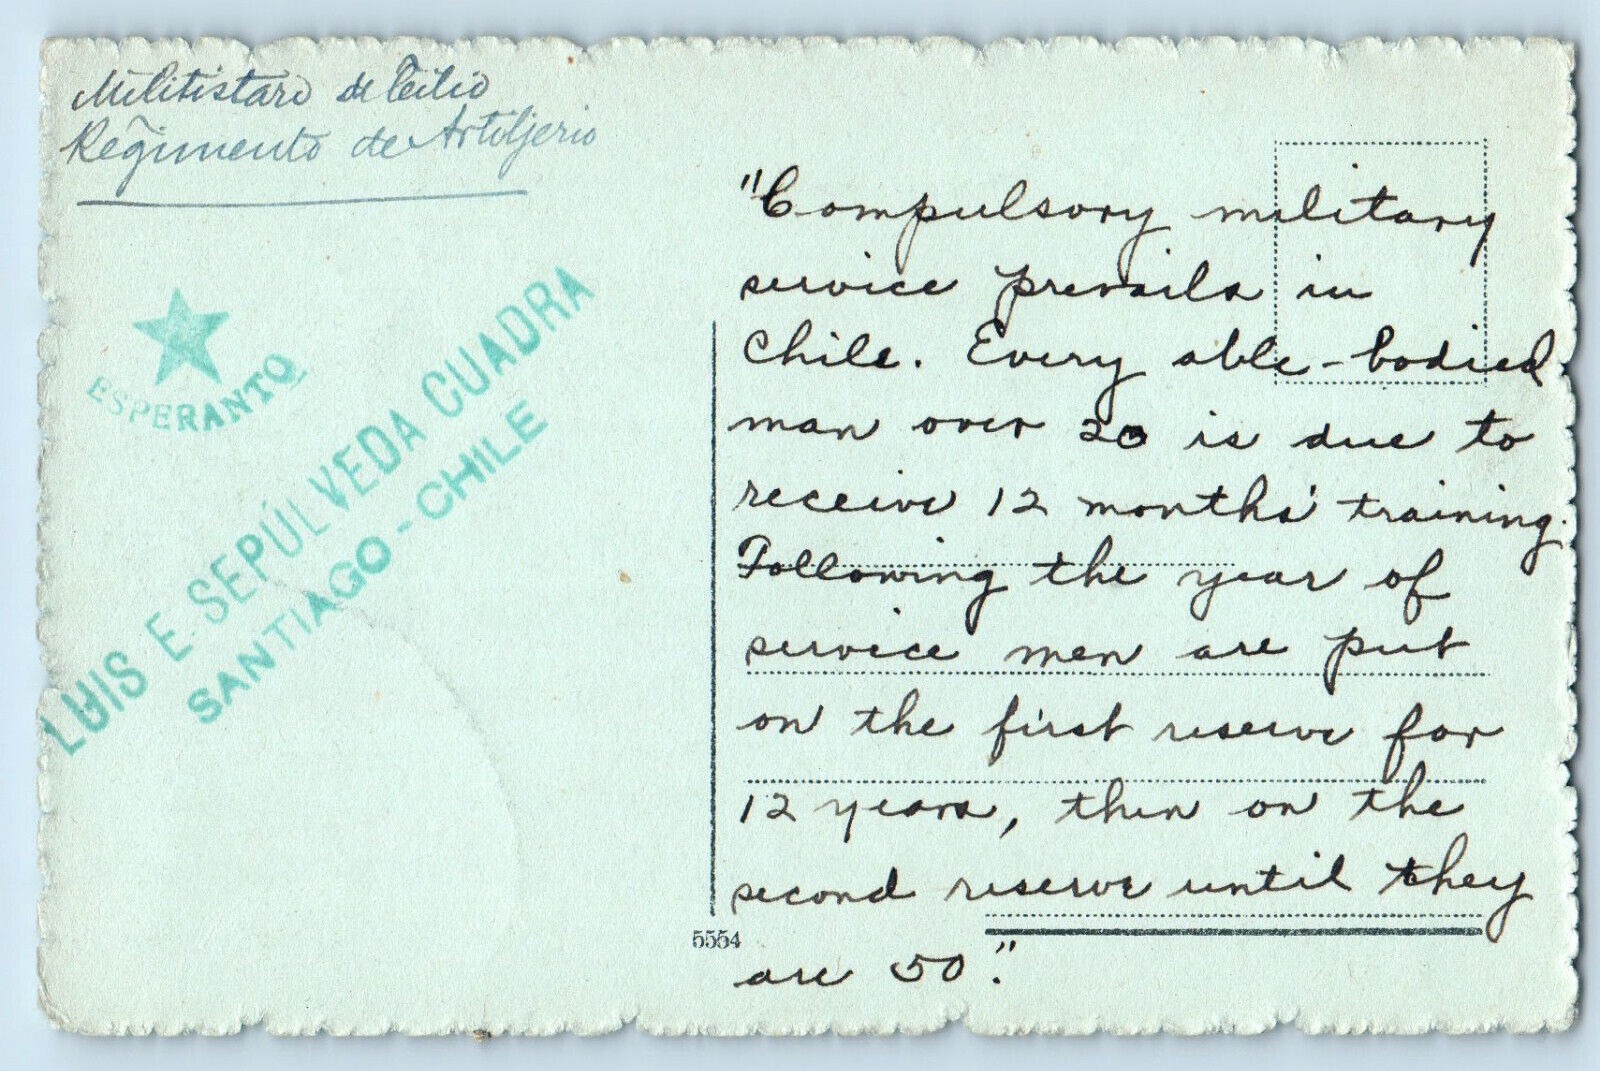 Militistaro de Ĉilio
Regimento de Artiljerio
ESPERANTO
LUIS E. SEPÚLVEDA CUADRA
SANTIAGO - CHILE
"Compulsory military
service prevails in
Chile. Every able-bodied
man over 20 is due to
receive 12 months' training.
Following the year of
service men are put
on the first reserve for
12 years, then on the
second reserve until they
are 50."
5554